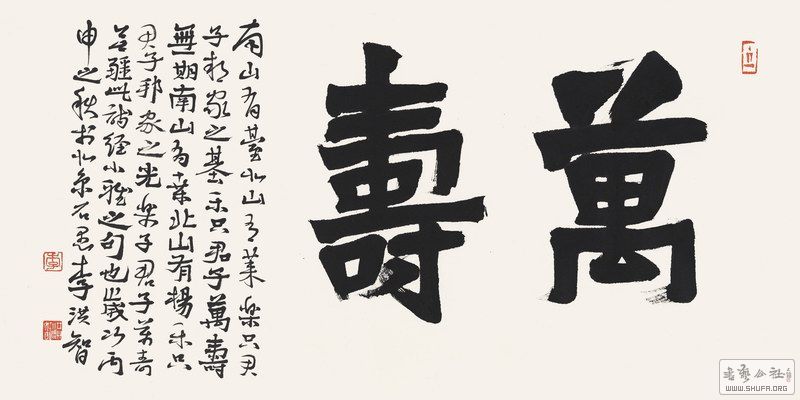 萬壽
南山有臺北山有萊樂只君
子邦家之基樂只君子萬壽
無期南山有桑北山有楊樂只
君子邦家之光樂子君子萬壽
無疆此詩經小雅之句也歲次丙
申之秋於北京石愚李洪智
書藝公社
WWW.SHUFA.ORG